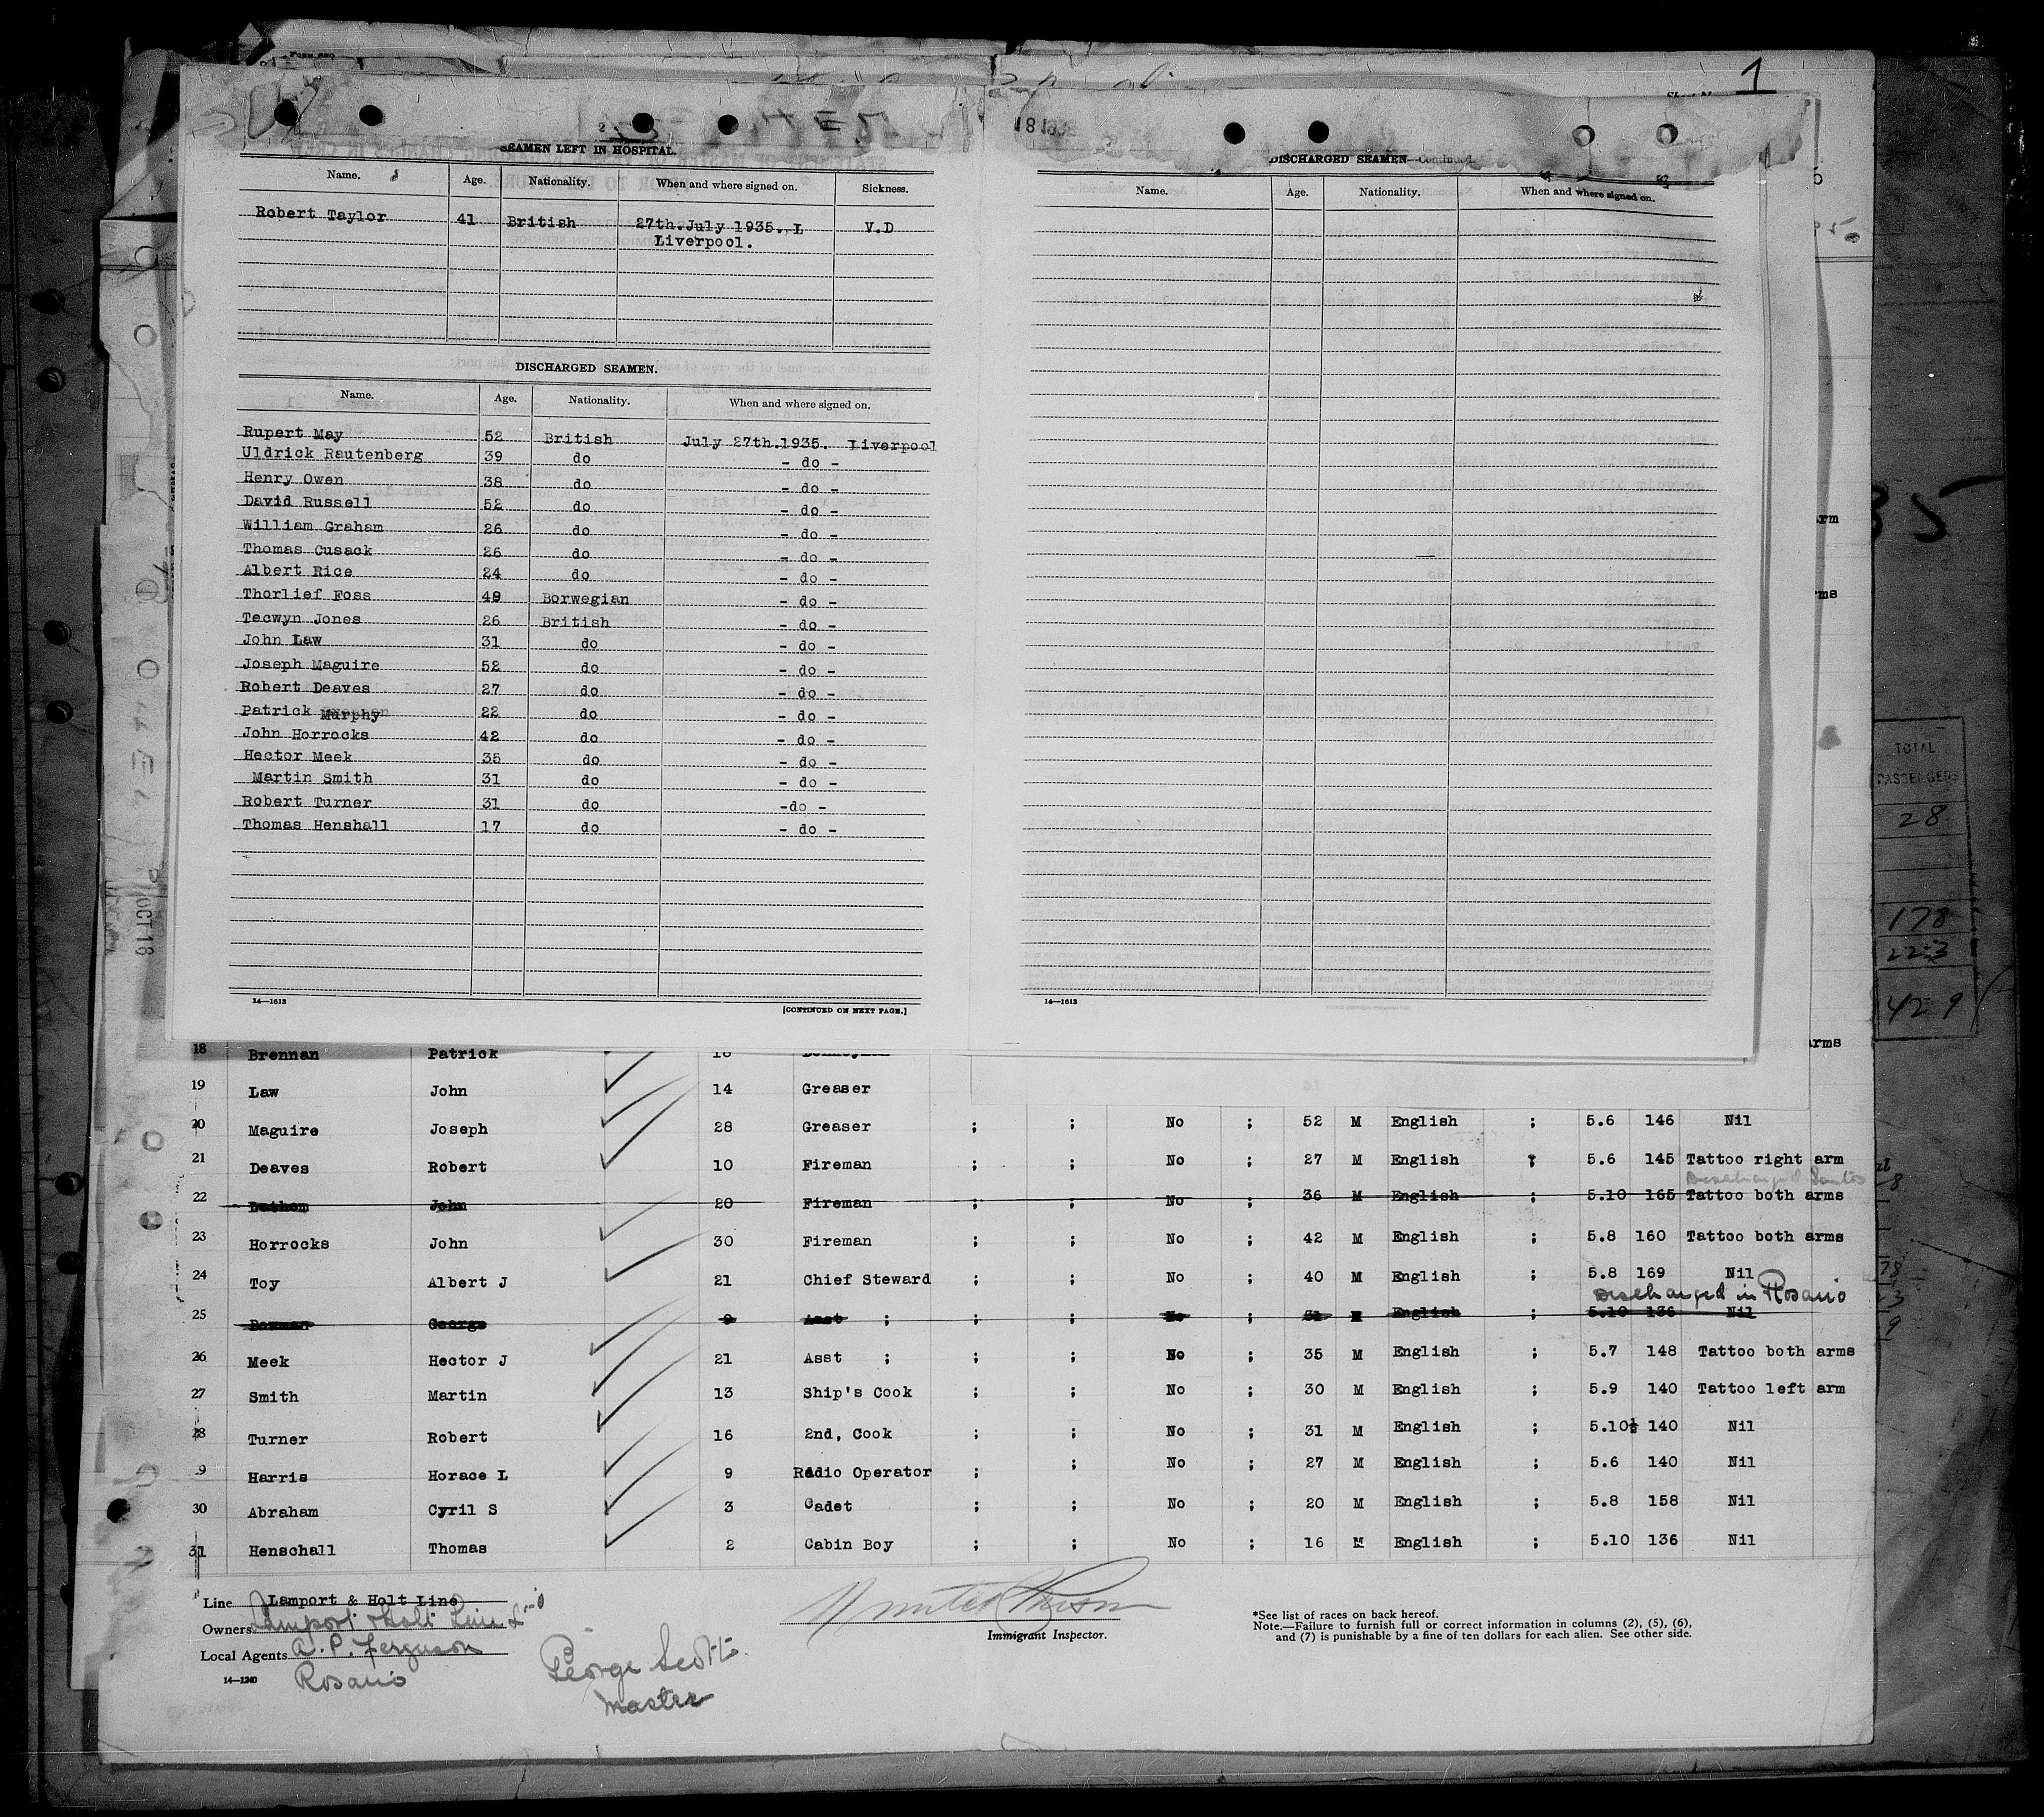 1
SEAMEN LEFT IN HOSPITAL.
Name. Age. Nationality. When and where signed on. Sickness.
Robert Taylor 41 British 27th.July 1935. L V.D
Liverpool.
DISCHARGED SEAMEN.
Name. Age. Nationality. When and where signed on.
Rupert May 52 British July 27th.1935. Liverpool
Uldrick Rautenberg 39 do - do -
Henry Owen 38 do - do -
David Russell 52 do - do -
William Graham 26 do - do -
Thomas Cusack 26 do - do -
Albert Rice 24 do - do -
Thorlief Foss 49 Borwegian - do -
Tecwyn Jones 26 British - do -
John Law 31 do - do -
Joseph Maguire 52 do - do -
Robert Deaves 27 do - do -
Patrick Murphy 22 do - do -
John Horrocks 42 do - do -
Hector Meek 35 do - do -
Martin Smith 31 do - do -
Robert Turner 31 do -do -
Thomas Henshall 17 do - do -
14—1613 [CONTINUED ON NEXT PAGE.]
DISCHARGED SEAMEN—Continued
Name. Age. Nationality. When and where signed on.
14—1613
35
arm
rms
TOTAL
PASSENGERS
28
178
223
429
OCT 18
18 Brennan Patrick 18 Donkeyman arms
19 Law John 14 Greaser
20 Maguire Joseph 28 Greaser ; ; No ; 52 M English ; 5.6 146 Nil
21 Deaves Robert 10 Fireman ; ; No ; 27 M English ; 5.6 145 Tattoo right arm
Discharged Santos
22 Bathom John 20 Fireman ; ; No ; 36 M English ; 5.10 165 Tattoo both arms
23 Horrocks John 30 Fireman ; ; No ; 42 M English ; 5.8 160 Tattoo both arms
24 Toy Albert J 21 Chief Steward ; ; No ; 40 M English ; 5.8 169 Nil
Discharged in Rosario
25 Bowman George 9 Asst ; ; ; No ; 31 M English ; 5.10 136 Nil
26 Meek Hector J 21 Asst ; ; ; No ; 35 M English ; 5.7 148 Tattoo both arms
27 Smith Martin 13 Ship's Cook ; ; No ; 30 M English ; 5.9 140 Tattoo left arm
28 Turner Robert 16 2nd, Cook ; ; No ; 31 M English ; 5.10½ 140 Nil
9 Harris Horace L 9 Radio Operator ; ; No ; 27 M English ; 5.6 140 Nil
30 Abraham Cyril S 3 Cadet ; ; No ; 20 M English ; 5.8 158 Nil
31 Henschall Thomas 2 Cabin Boy ; ; No ; 16 M English ; 5.10 136 Nil
Line Lamport & Holt Line
Owners Lamport & Holt Line Ltd
Local Agents A. P. Ferguson
14—1240 Rosario
George Scott.
Master
Immigrant Inspector.
*See list of races on back hereof.
Note.—Failure to furnish full or correct information in columns (2), (5), (6),
and (7) is punishable by a fine of ten dollars for each alien. See other side.